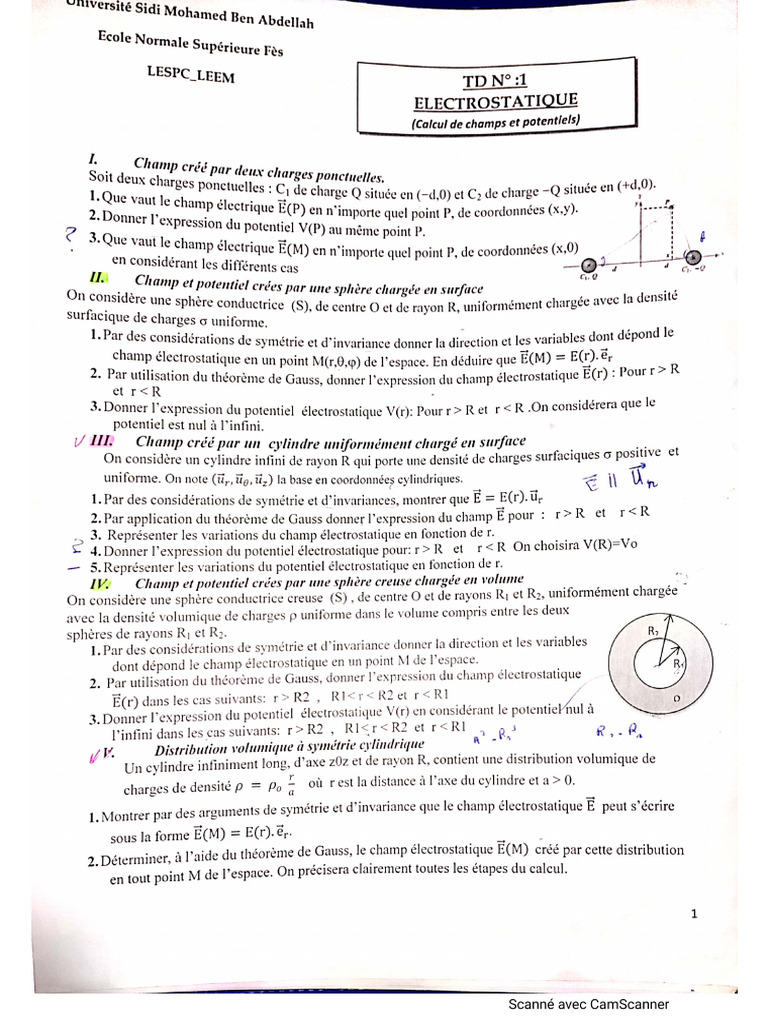 Université Sidi Mohamed Ben Abdellah
Ecole Normale Supérieure Fès
LESPC_LEEM
TD N° :1
ELECTROSTATIQUE
(Calcul de champs et potentiels)
I. Champ créé par deux charges ponctuelles.
Soit deux charges ponctuelles : C₁ de charge Q située en (−d,0) et C₂ de charge −Q située en (+d,0).
1. Que vaut le champ électrique E⃗(P) en n'importe quel point P, de coordonnées (x,y).
2. Donner l'expression du potentiel V(P) au même point P.
? 3. Que vaut le champ électrique E⃗(M) en n'importe quel point P, de coordonnées (x,0)
en considérant les différents cas
C₁, Q d d C₂, −Q
II. Champ et potentiel crées par une sphère chargée en surface
On considère une sphère conductrice (S), de centre O et de rayon R, uniformément chargée avec la densité
surfacique de charges σ uniforme.
1. Par des considérations de symétrie et d'invariance donner la direction et les variables dont dépend le
champ électrostatique en un point M(r,θ,φ) de l'espace. En déduire que E⃗(M) = E(r). e⃗ᵣ
2. Par utilisation du théorème de Gauss, donner l'expression du champ électrostatique E⃗(r) : Pour r > R
et r < R
3. Donner l'expression du potentiel électrostatique V(r): Pour r > R et r < R .On considérera que le
potentiel est nul à l'infini.
III. Champ créé par un cylindre uniformément chargé en surface
On considère un cylindre infini de rayon R qui porte une densité de charges surfaciques σ positive et
uniforme. On note (u⃗ᵣ, u⃗θ, u⃗z) la base en coordonnées cylindriques.
E⃗ // U⃗r
1. Par des considérations de symétrie et d'invariances, montrer que E⃗ = E(r). u⃗ᵣ
2. Par application du théorème de Gauss donner l'expression du champ E⃗ pour : r > R et r < R
3. Représenter les variations du champ électrostatique en fonction de r.
? 4. Donner l'expression du potentiel électrostatique pour: r > R et r < R On choisira V(R)=Vo
– 5. Représenter les variations du potentiel électrostatique en fonction de r.
IV. Champ et potentiel crées par une sphère creuse chargée en volume
On considère une sphère conductrice creuse (S) , de centre O et de rayons R₁ et R₂, uniformément chargée
avec la densité volumique de charges ρ uniforme dans le volume compris entre les deux
sphères de rayons R₁ et R₂.
1. Par des considérations de symétrie et d'invariance donner la direction et les variables
dont dépend le champ électrostatique en un point M de l'espace.
2. Par utilisation du théorème de Gauss, donner l'expression du champ électrostatique
E⃗(r) dans les cas suivants: r > R2 , R1< r < R2 et r < R1
3. Donner l'expression du potentiel électrostatique V(r) en considérant le potentiel nul à
l'infini dans les cas suivants: r > R2 , R1< r < R2 et r < R1
R₂
R₁
V. Distribution volumique à symétrie cylindrique
Un cylindre infiniment long, d'axe z0z et de rayon R, contient une distribution volumique de
charges de densité ρ = ρₒ r/a où r est la distance à l'axe du cylindre et a > 0.
1. Montrer par des arguments de symétrie et d'invariance que le champ électrostatique E⃗ peut s'écrire
sous la forme E⃗(M) = E(r). e⃗ᵣ.
2. Déterminer, à l'aide du théorème de Gauss, le champ électrostatique E⃗(M) créé par cette distribution
en tout point M de l'espace. On précisera clairement toutes les étapes du calcul.
1
Scanné avec CamScanner